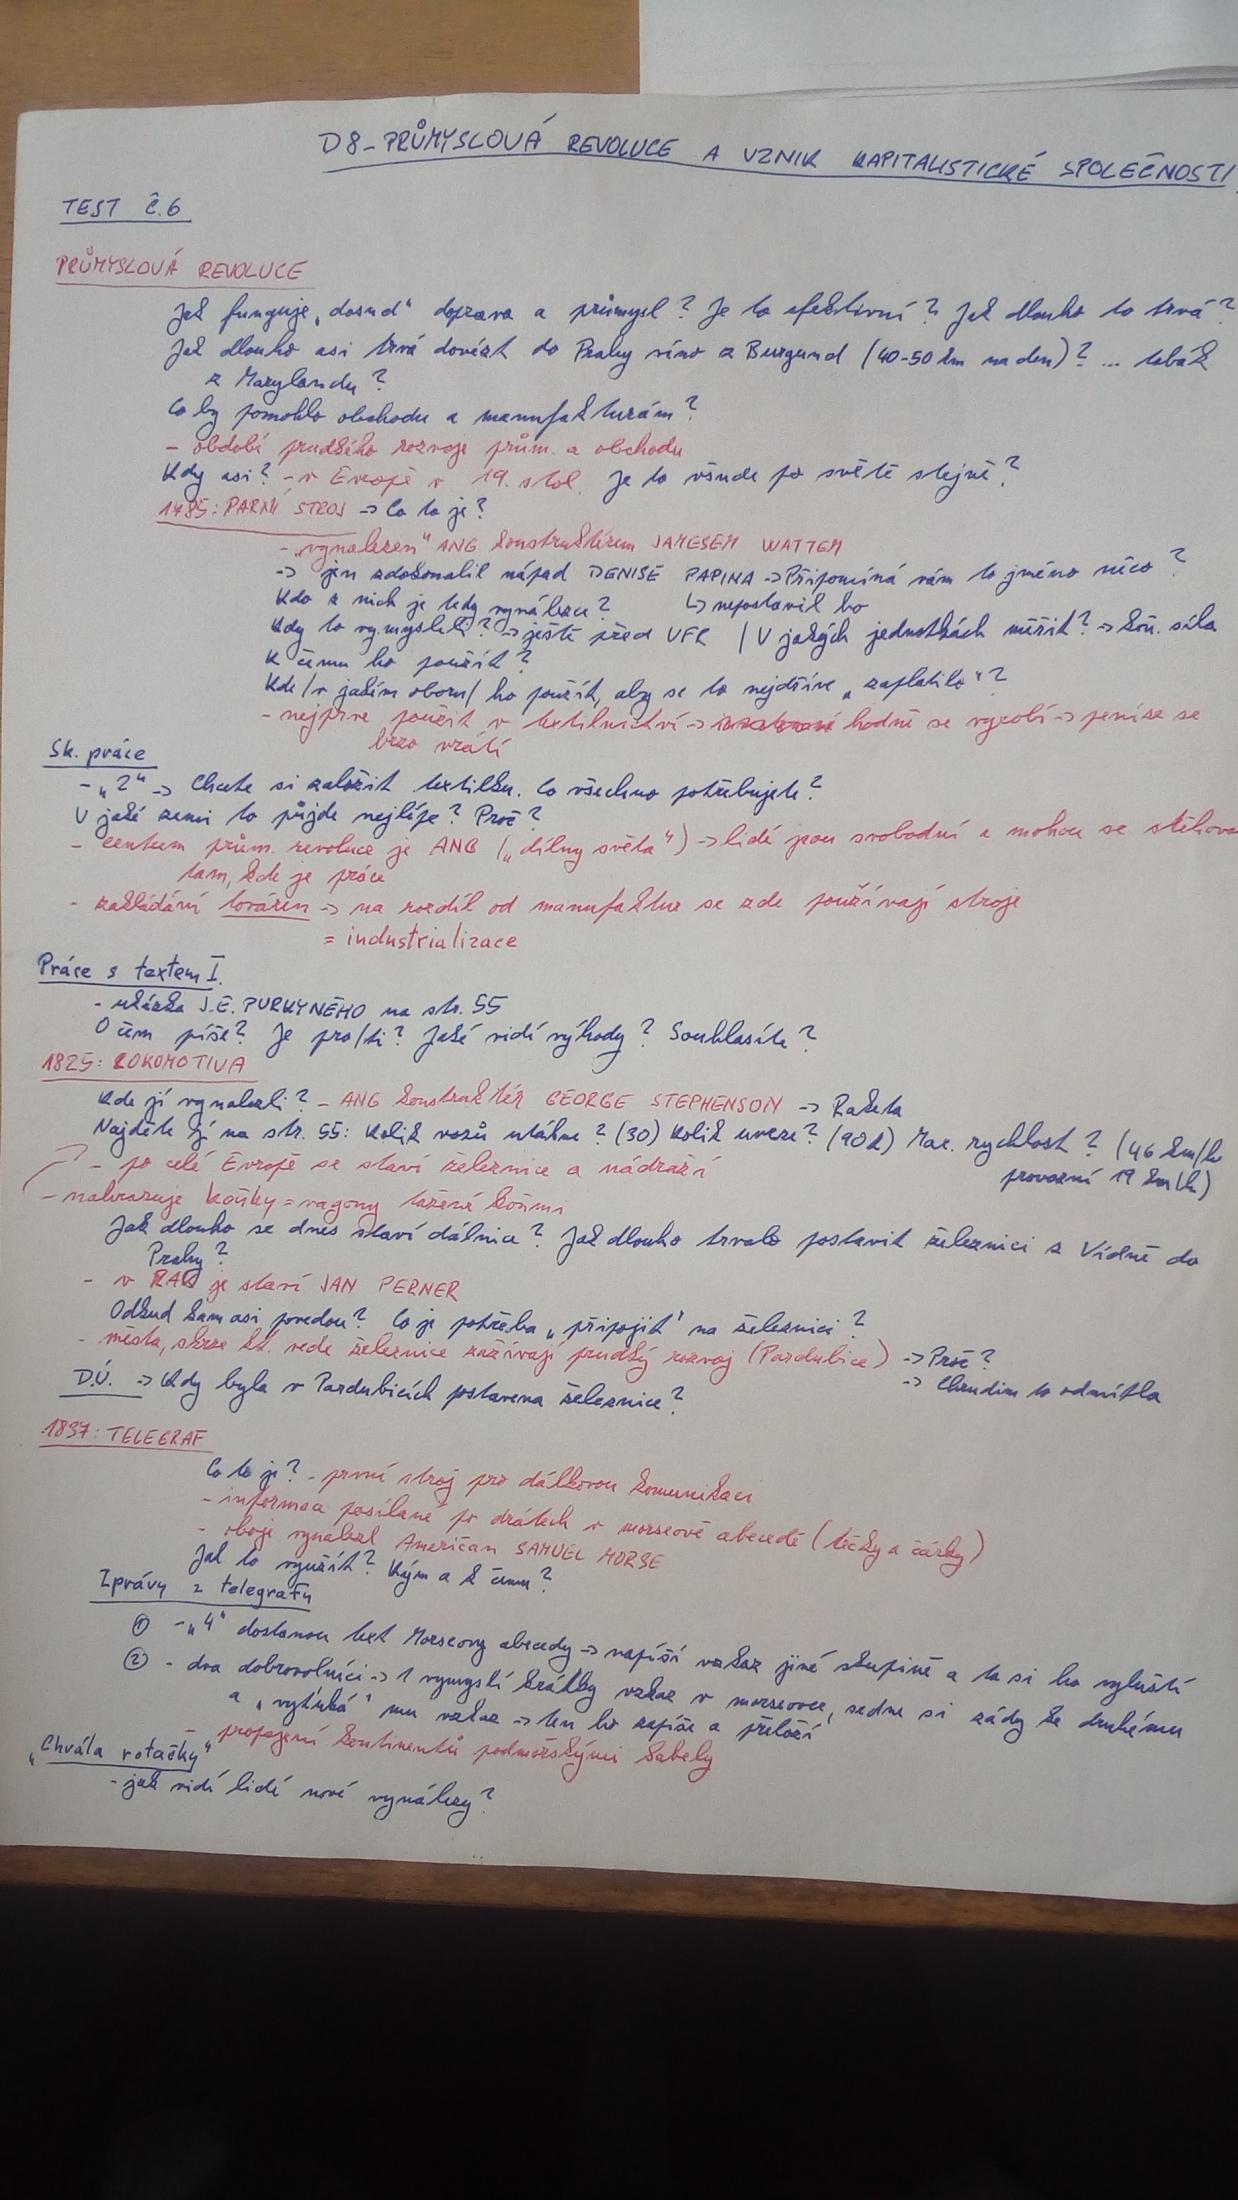 D8-PRŮMYSLOVÁ REVOLUCE A VZNIK KAPITALISTICKÉ SPOLEČNOSTI
TEST Č.6
PRŮMYSLOVÁ REVOLUCE
Jak funguje „dosud“ doprava a průmysl? Je to efektivní? Jak dlouho to trvá?
Jak dlouho asi trvá dovézt do Prahy víno z Burgund (40-50 km na den)? ... tabák
z Marylandu?
Co by pomohlo obchodu a manufakturám?
- období prudkého rozvoje prům. a obchodu
Kdy asi? - v Evropě v 19. stol. Je to všude po světě stejně?
1785: PARNÍ STROJ -> Co to je?
- „vynalezen“ ANG konstruktérem JAMESEM WATTEM
-> jen zdokonalil nápad DENISE PAPINA -> Připomíná vám to jméno něco?
Kdo z nich je tedy vynálezce? ↳ nepostavil ho
Kdy to vymysleli? -> ještě před VFR / V jakých jednotkách měřit? -> koň. síla
K čemu ho použít?
Kde /v jakém oboru/ ho použít, aby se to nejdříve „zaplatilo“?
- nejprve použit v textilnictví -> hodně se vyrobí -> peníze se
brzo vrátí
Sk. práce
- „2“ -> Chcete si založit textilku. Co všechno potřebujete?
V jaké zemi to půjde nejlépe? Proč?
- centrum prům. revoluce je ANG („dílny světa“) -> lidé jsou svobodní a mohou se stěhova
tam, kde je práce
- zakládání továren -> na rozdíl od manufaktur se zde používají stroje
= industrializace
Práce s textem I.
- ukázka J.E. PURKYNĚHO na str. 55
O čem píše? Je pro/ti? Jaké vidí výhody? Souhlasíte?
1825: LOKOMOTIVA
Kde jí vynalezli? - ANG konstruktér GEORGE STEPHENSON -> Raketa
Najděte jí na str. 55: Kolik vozů utáhne? (30) Kolik uveze? (90t) Max. rychlost? (46 km/h
provozní 19 km/h)
- po celé Evropě se staví železnice a nádraží
- nahrazuje koňky = vagony tažené koňmi
Jak dlouho se dnes staví dálnice? Jak dlouho trvalo postavit železnici z Vídně do
Prahy?
- v RAK je staví JAN PERNER
Odkud kam asi povedou? Co je potřeba „připojit“ na železnici?
- města, skrze kt. vede železnice zažívají prudký rozvoj (Pardubice) -> Proč?
-> Chrudim to odmítla
D.Ú. -> Kdy byla v Pardubicích postavena železnice?
1837: TELEGRAF
Co to je? - první stroj pro dálkovou komunikaci
- informace posílané po drátech v morseově abecedě (tečky a čárky)
- oboje vynalezl Američan SAMUEL MORSE
Jak to využít? Kým a k čemu?
Zprávy z telegrafu
① - „4“ dostanou text Morseovy abecedy -> napíší vzkaz jiné skupině a ta si ho vyluští
② - dva dobrovolníci -> 1 vymyslí krátký vzkaz v morseovce, sedne si zády ke druhému
a „vyťuká“ mu vzkaz -> ten ho zapíše a přeloží
- propojení kontinentů podmořskými kabely
„Chvála rotačky“
- jak vidí lidé nové vynálezy?